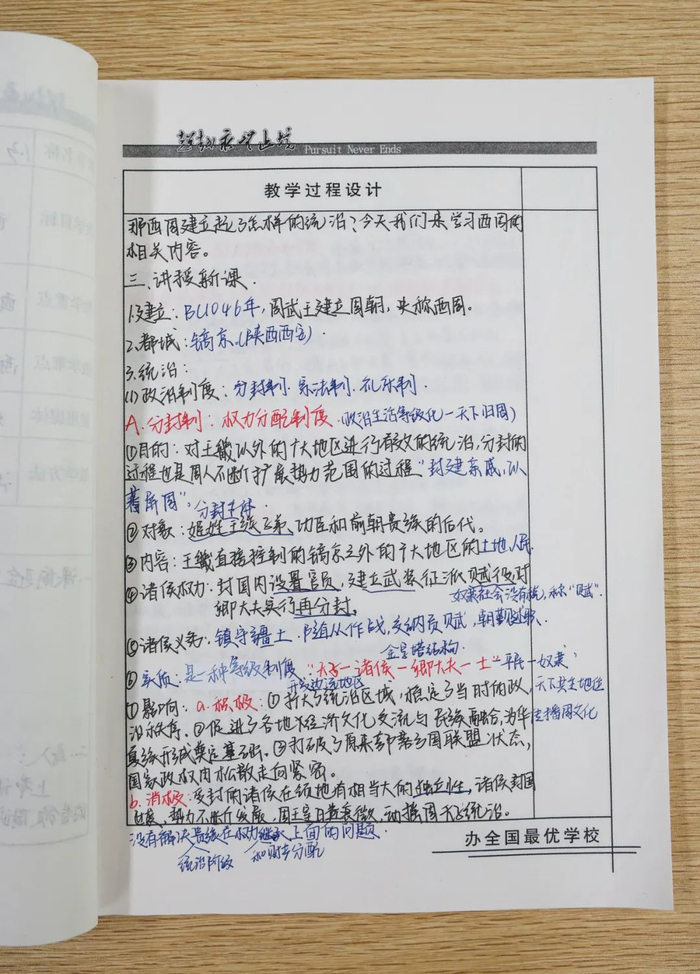 Pursuit Never Ends
教学过程设计
那西周建立起了怎样的统治?今天我们来学习西周的
相关内容。
三、讲授新课.
1.建立:BC1046年,周武王建立周朝,史称西周。
2.都城:镐京.(陕西西安)
3.统治:
(1)政治制度:分封制.宗法制.礼乐制.
A.分封制:权力分配制度.(政治生活等级化一天下归周)
①目的:对王畿以外的广大地区进行有效的统治,分封的
过程也是周人不断扩展势力范围的过程"封建亲戚,以
蕃屏周"。分封主体
②对象:姬姓王族子弟、功臣和前朝贵族的后代。
③内容:王畿直接控制的镐京之外的广大地区的土地人民
④诸侯权力:封国内设置官员,建立武装征派赋役对
卿大夫实行再分封。
奴隶社会没有税,称"赋"。
⑤诸侯义务:镇守疆土.随从作战,交纳贡赋,朝觐述职.
金字塔结构.
⑥实质:是一种等级制度."天子一诸侯一卿大夫一士"平民一奴隶
开发边远地区
⑦影响:a.积极:①扩大了统治区域,稳定了当时的政
天下共主地位
治秩序.②促进了各地区经济文化交流与民族融合,为华
传播周文化
夏族形成奠定基础.③打破了原来部落方国联盟状态,
国家政权由松散走向紧密。
b.消极:受封的诸侯在领地有相当大的独立性,诸侯封国
势力不断发展,周王室日益衰微,动摇周天子统治。
没有解决贵族在权力继承上面的问题.
统治阶级
和财产分配
办全国最优学校